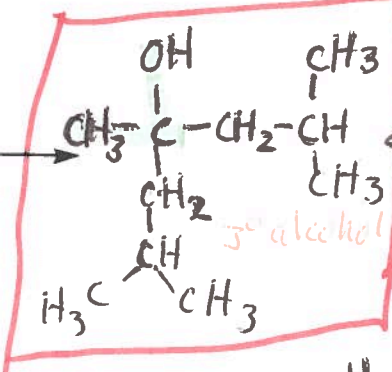 OH CH3
CH3-C-CH2-CH
CH2 CH3
3° alcohol
CH
H3C CH3